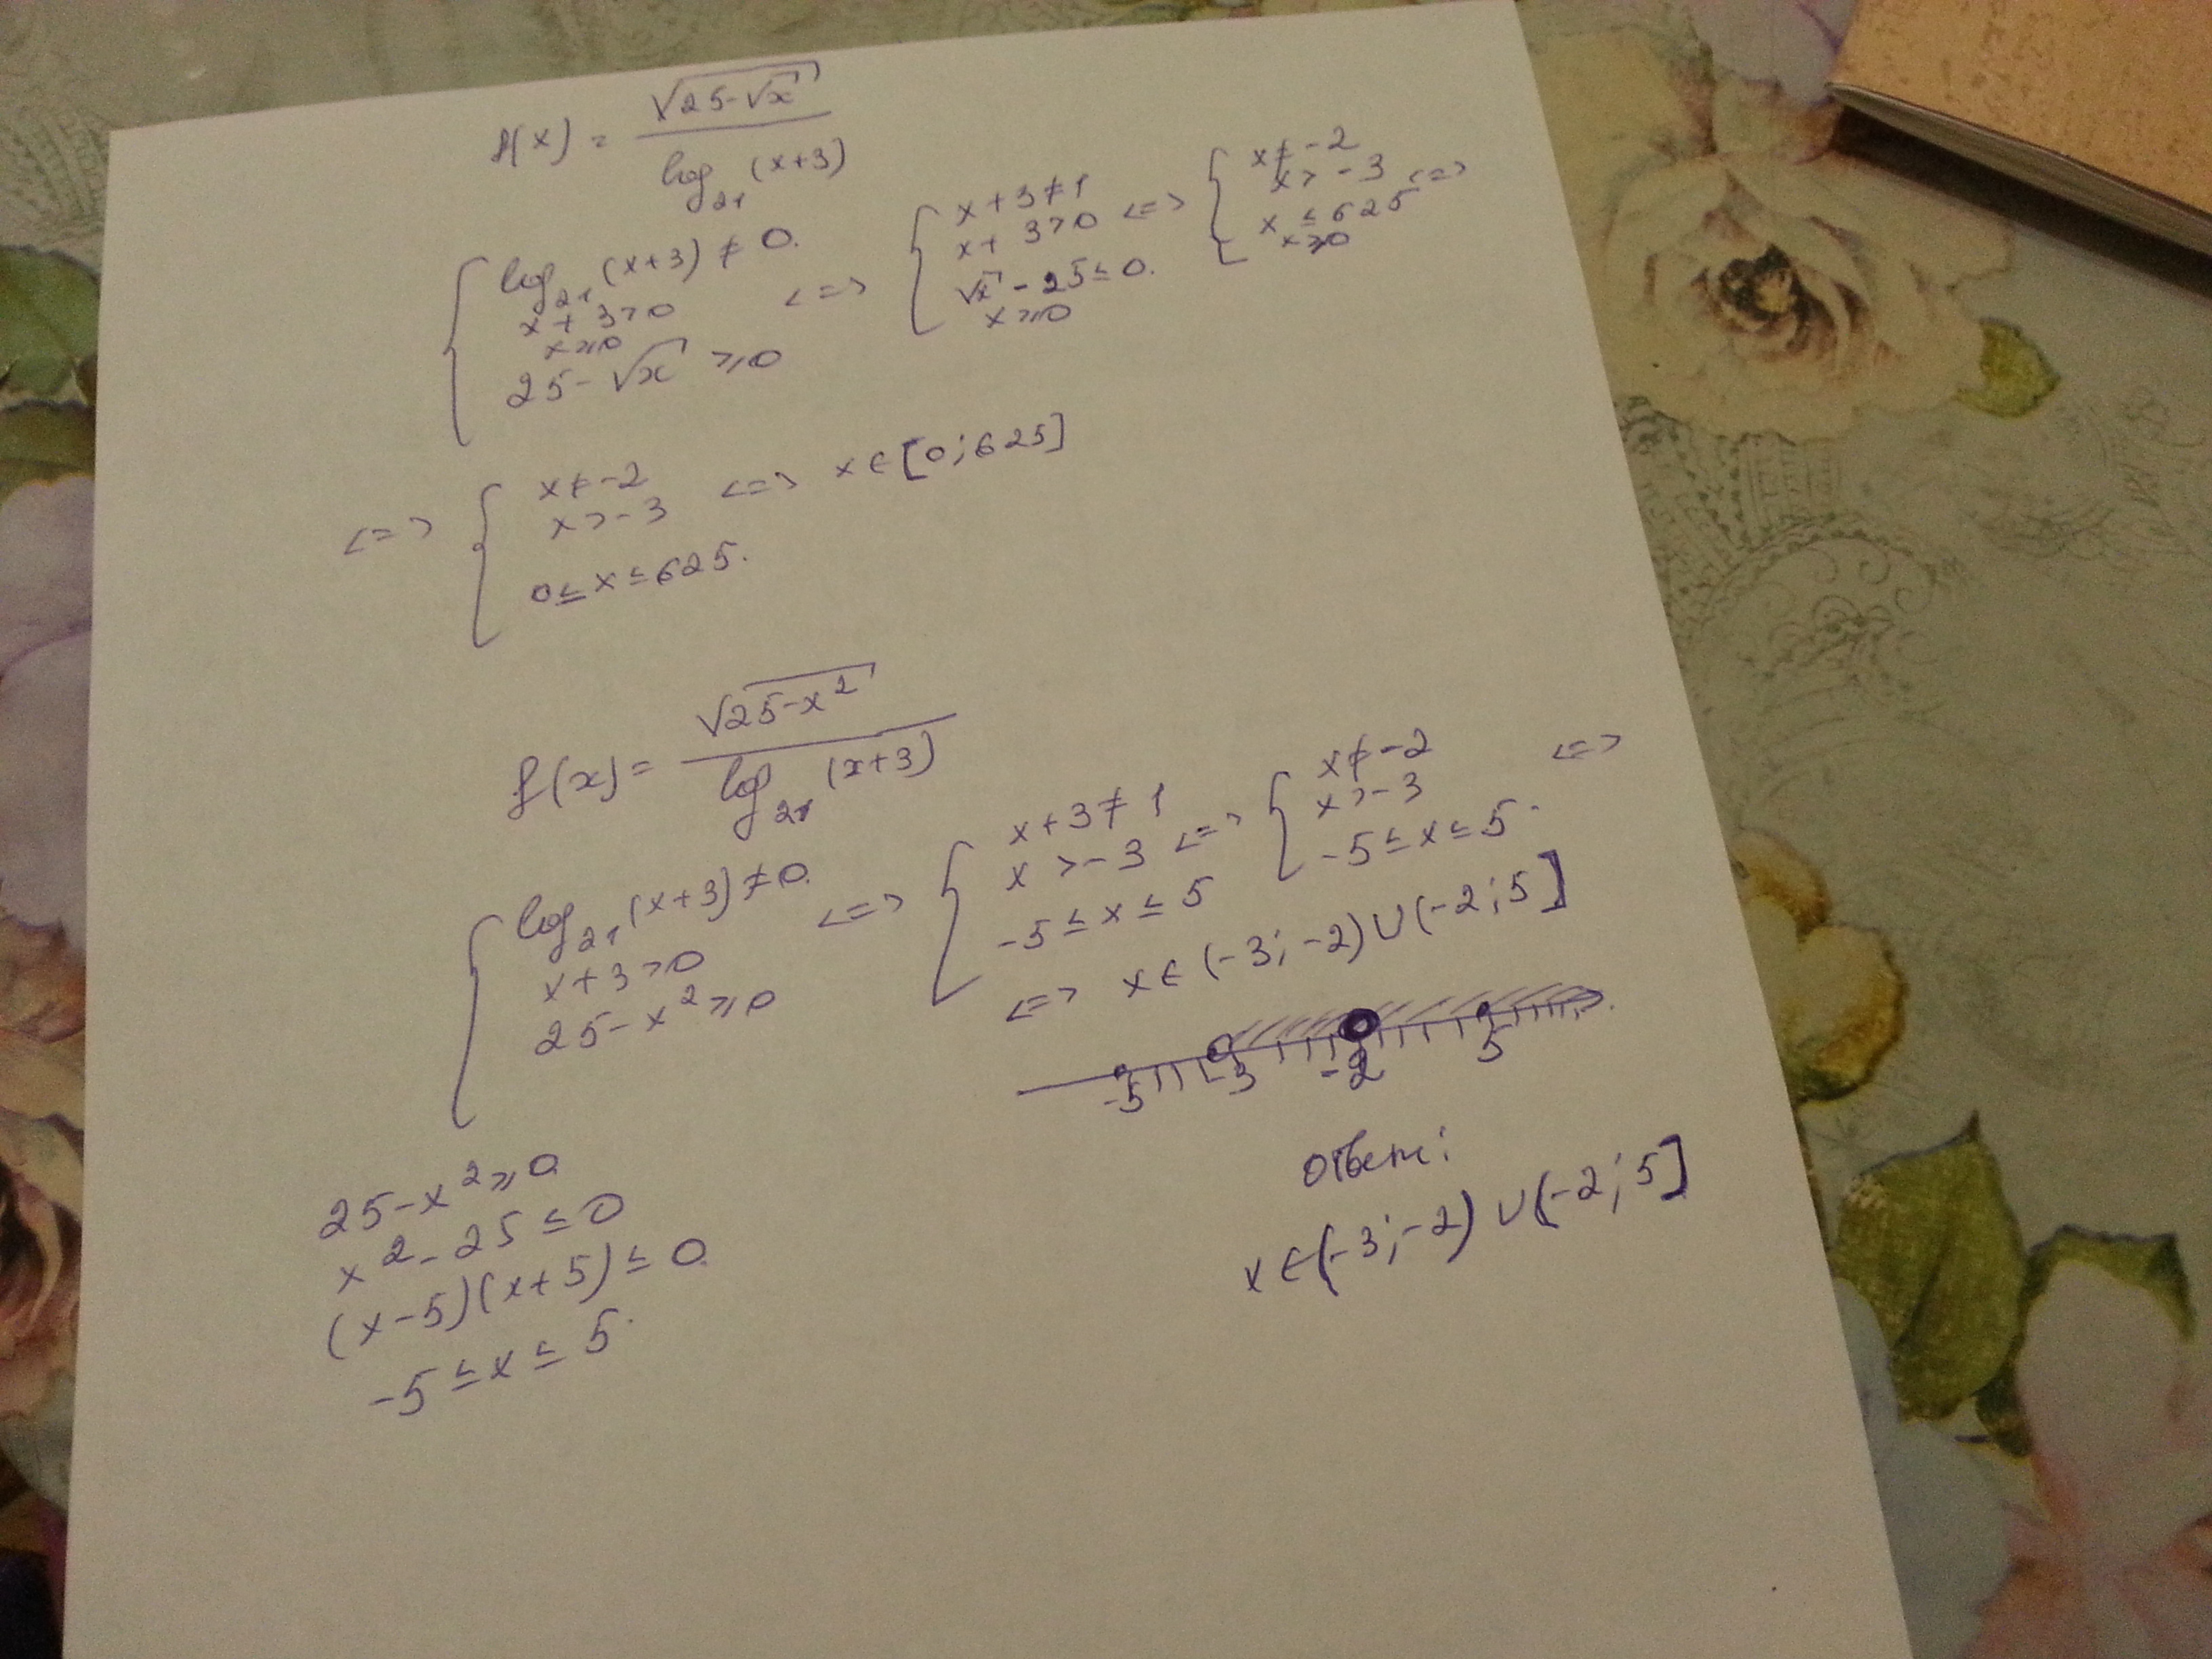 f(x) = √(25-√x) / log₂₁(x+3)
{ log₂₁(x+3) ≠ 0.
x+3>0
x⩾0
25-√x ⩾0
<=> { x+3≠1
x+3>0
√x-25≤0.
x⩾0
<=> { x≠-2
x>-3
x≤625
x⩾0
<=>
<=> { x≠-2
x>-3
0≤x≤625.
<=> x∈[0;625]
f(x)= √(25-x²) / log₂₁(x+3)
{ log₂₁(x+3)≠0.
x+3>0
25-x²⩾0
<=> { x+3≠1
x>-3
-5≤x≤5
<=> { x≠-2
x>-3
-5≤x≤5.
<=>
<=> x∈(-3;-2)∪(-2;5]
-5 -3 -2 5
25-x²⩾0
x²-25≤0
(x-5)(x+5)≤0
-5≤x≤5.
Ответ:
x∈(-3;-2)∪(-2;5]